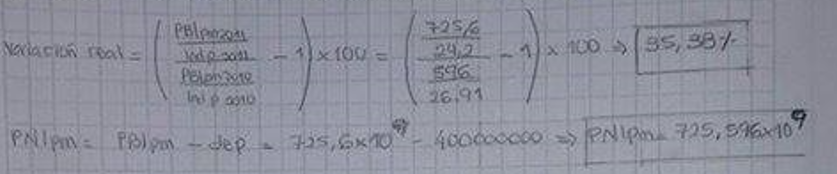 Variación real = ( PBIpm2011 / Ind p 2011 / PBIpm2010 / Ind p 2010 - 1 ) × 100 = ( 725,6 / 24,2 / 596 / 26,91 - 1 ) × 100 ⇒ 35,38%
PNIpm = PBIpm - dep = 725,6×10⁹ - 400000000 ⇒ PNIpm= 725,596×10⁹